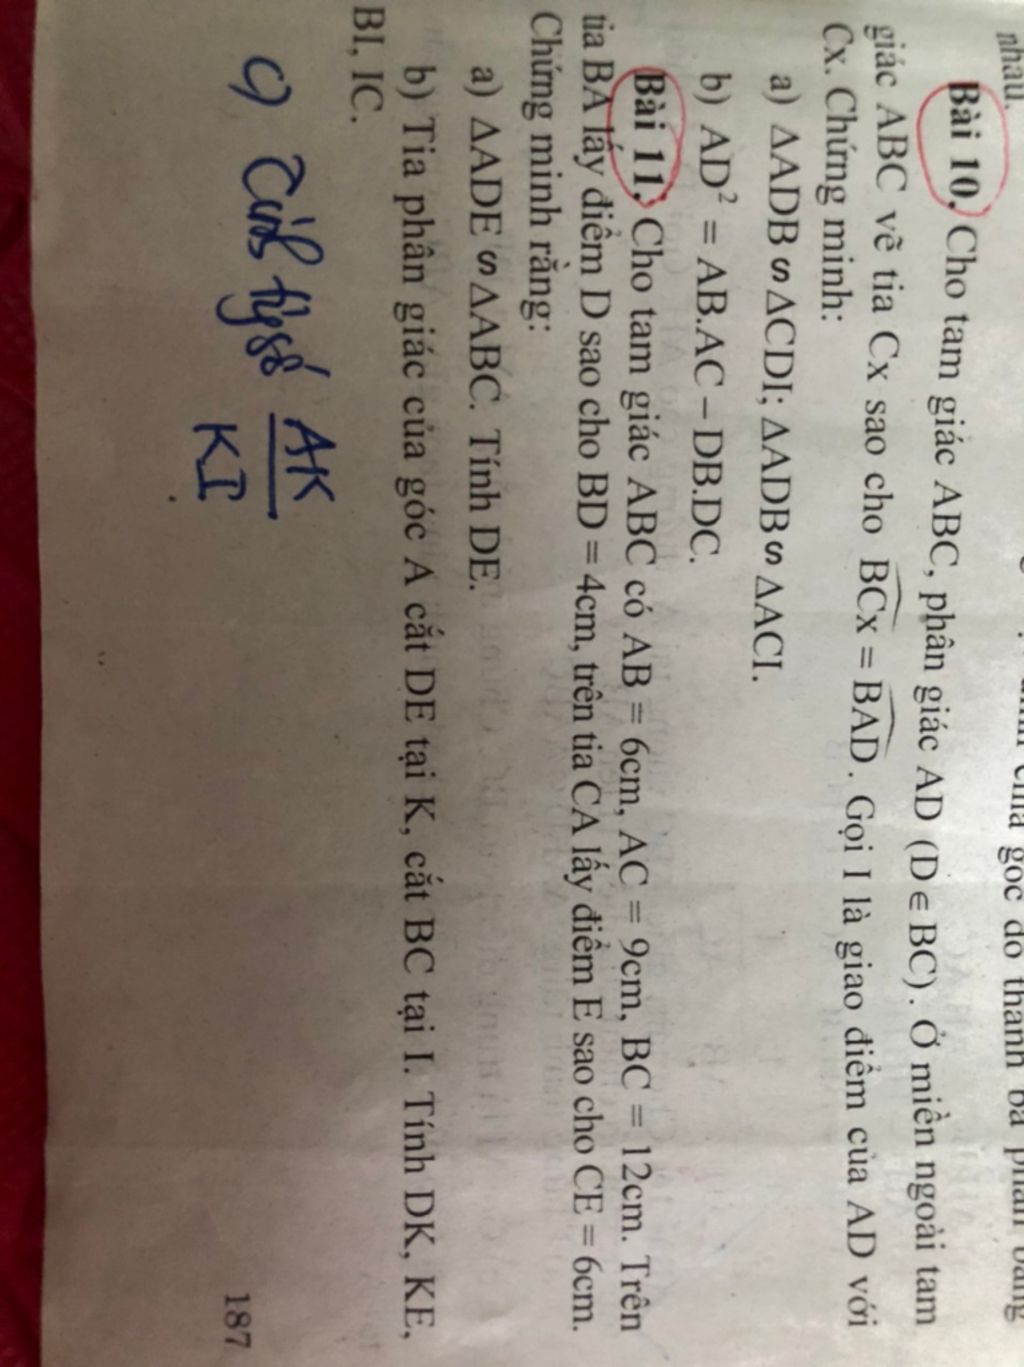 nhau.
Bài 10. Cho tam giác ABC, phân giác AD (D ∈ BC). Ở miền ngoài tam
giác ABC vẽ tia Cx sao cho BCx = BAD. Gọi I là giao điểm của AD với
Cx. Chứng minh:
a) ΔADB ∽ ΔCDI; ΔADB ∽ ΔACI.
b) AD² = AB.AC – DB.DC.
Bài 11. Cho tam giác ABC có AB = 6cm, AC = 9cm, BC = 12cm. Trên
tia BA lấy điểm D sao cho BD = 4cm, trên tia CA lấy điểm E sao cho CE = 6cm.
Chứng minh rằng:
a) ΔADE ∽ ΔABC. Tính DE.
b) Tia phân giác của góc A cắt DE tại K, cắt BC tại I. Tính DK, KE,
BI, IC.
c) Tính tỷ số AK
KI
187